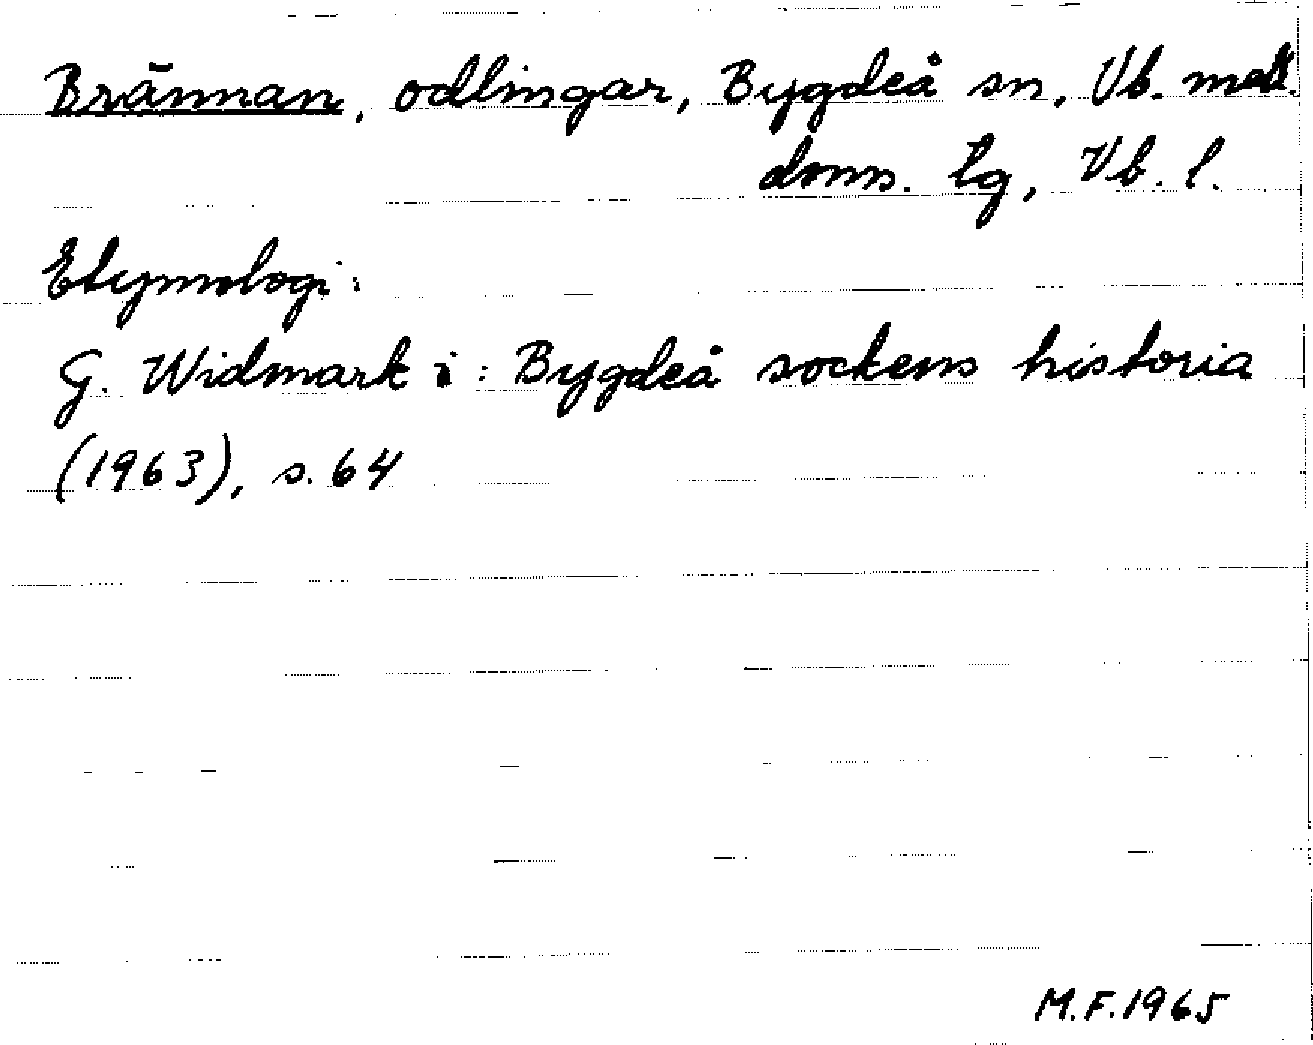 Brännan, odlingar, Bygdeå sn, Vb. mell.
doms. lg, Vb. l.
Etymologi:
G. Widmark i: Bygdeå sockens historia
(1963), s. 64
M.F. 1965